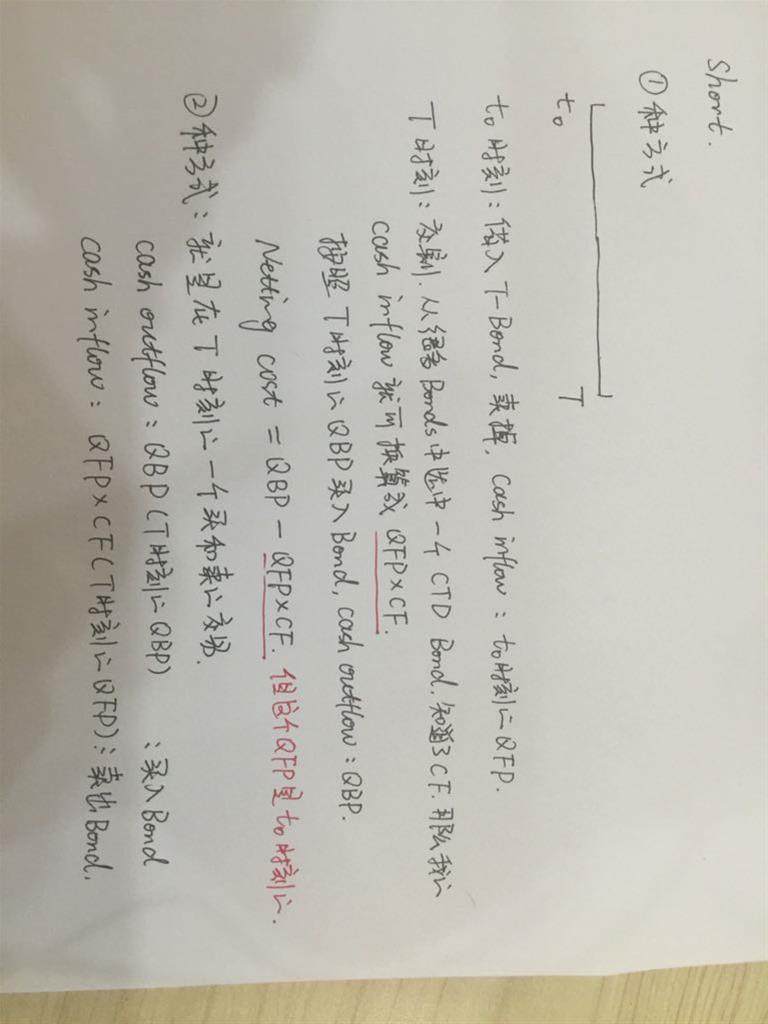 Short.
①种方式
t₀ T
t₀时刻：借入T-Bond, 卖掉, cash inflow：t₀时刻的QFP.
T时刻：交割. 从很多Bonds中选中一个CTD Bond. 知道了CF. 那么我的
cash inflow 就可换算成 QFP×CF.
按照T时刻的QBP买入Bond, cash outflow：QBP.
Netting cost = QBP - QFP×CF. 但这个QFP是t₀时刻的.
②种方式：就是在T时刻的一个买和卖的交易.
cash outflow：QBP(T时刻的QBP) ：买入Bond
cash inflow：QFP×CF(T时刻的QFP)：卖出Bond.